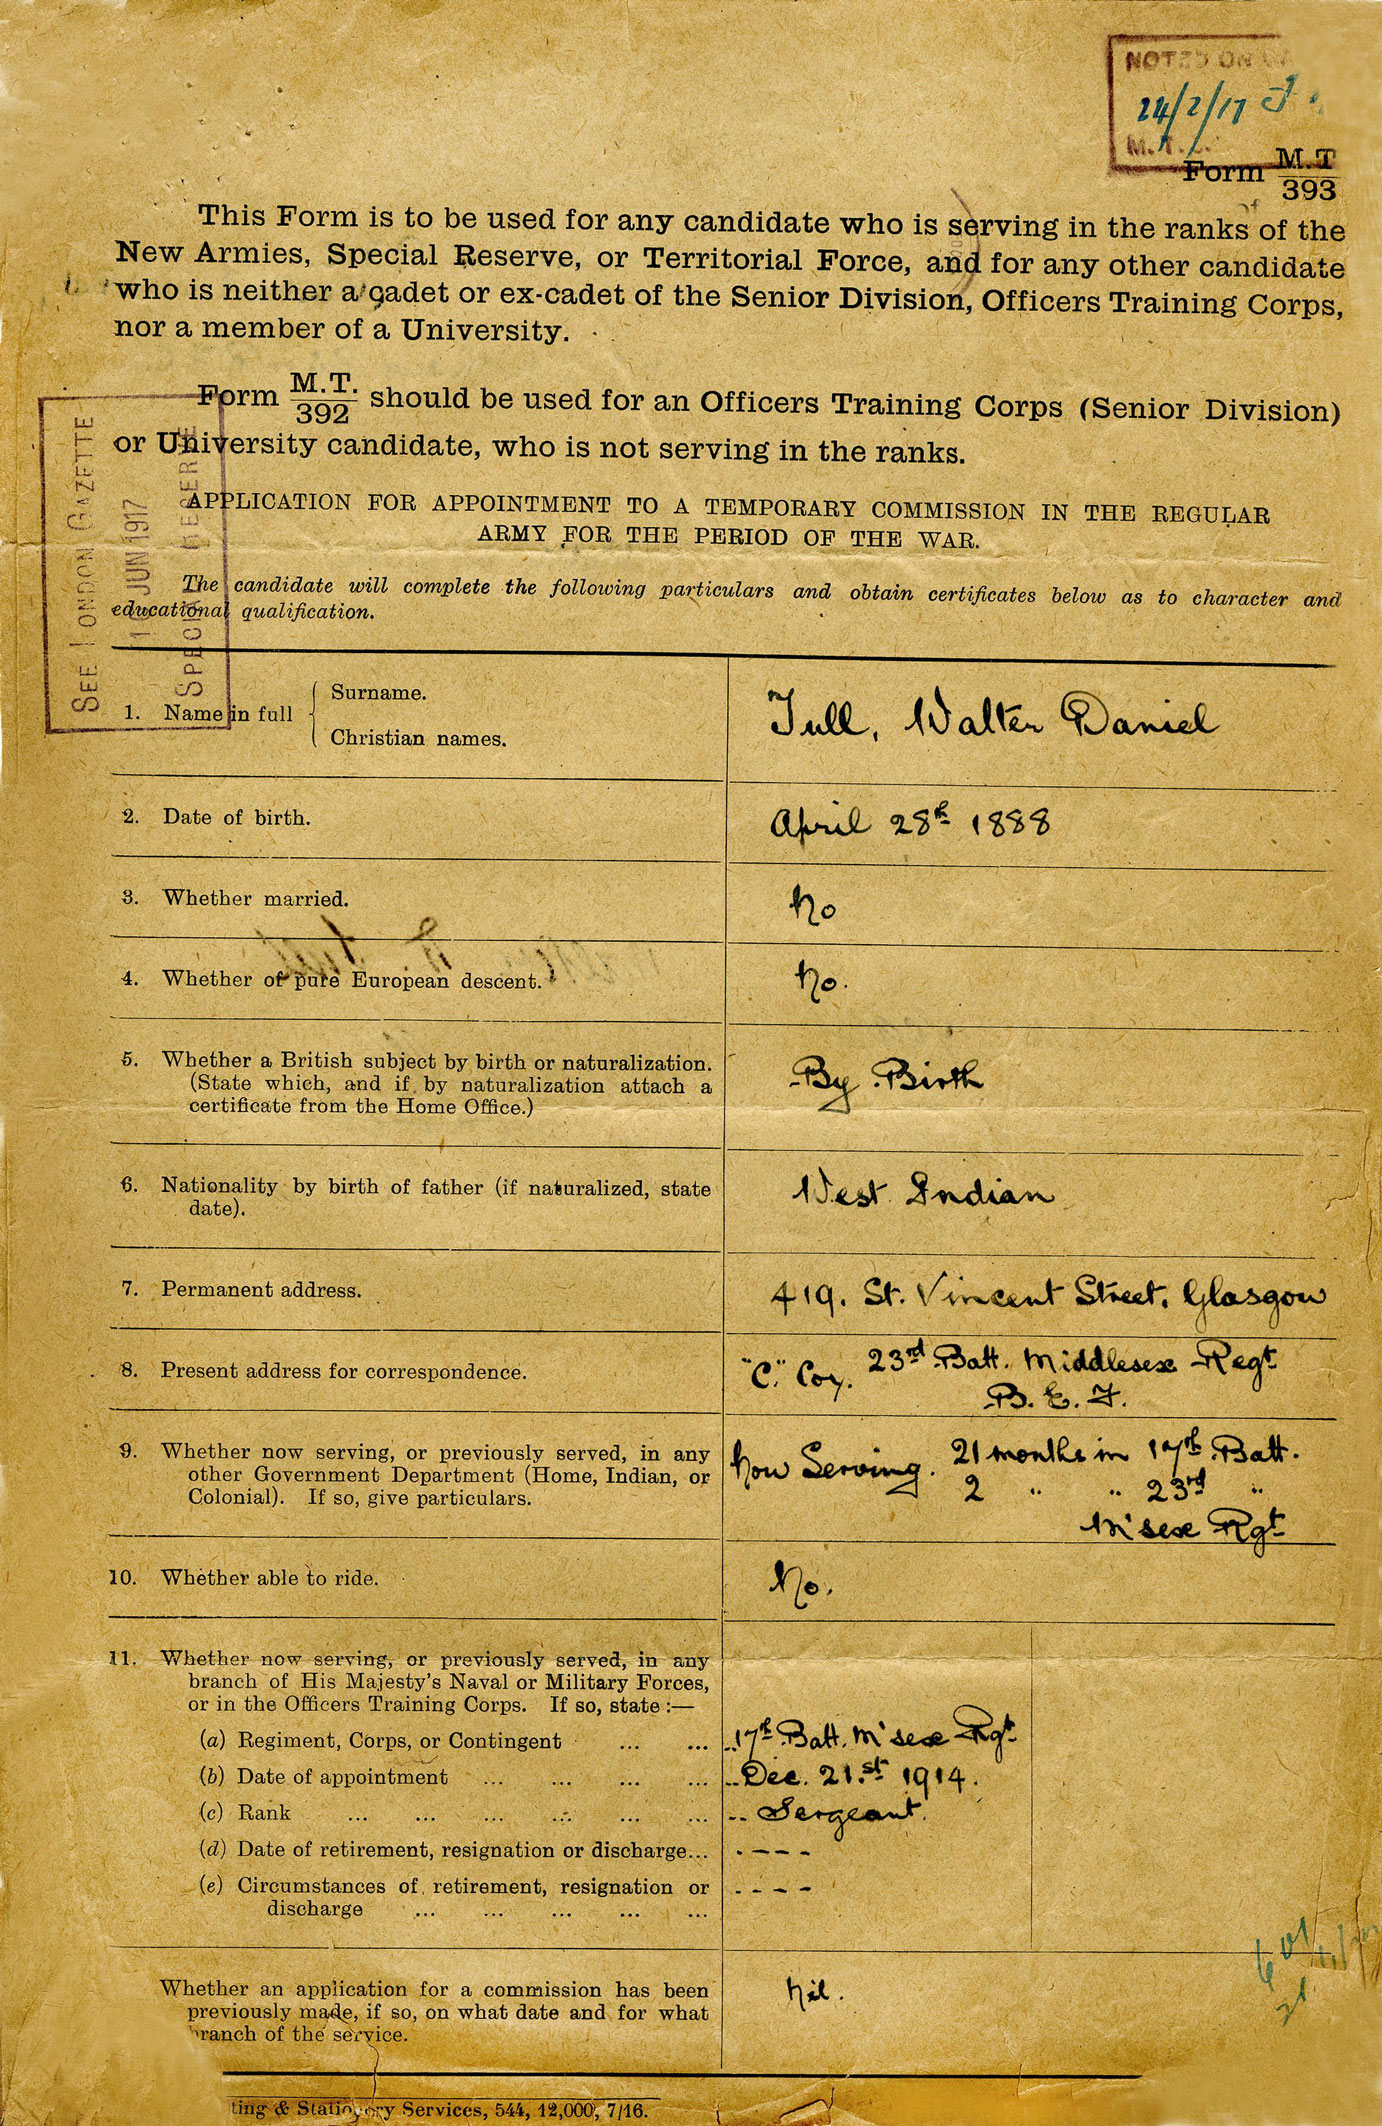 NOTED ON
24/2/17
Form M.T
393
This Form is to be used for any candidate who is serving in the ranks of the
New Armies, Special Reserve, or Territorial Force, and for any other candidate
who is neither a cadet or ex-cadet of the Senior Division, Officers Training Corps,
nor a member of a University.
Form M.T. should be used for an Officers Training Corps (Senior Division)
392
or University candidate, who is not serving in the ranks.
SEE LONDON GAZETTE
JUN 1917
SPECIAL RESERVE
APPLICATION FOR APPOINTMENT TO A TEMPORARY COMMISSION IN THE REGULAR
ARMY FOR THE PERIOD OF THE WAR.
The candidate will complete the following particulars and obtain certificates below as to character and
educational qualification.
1. Name in full { Surname.
Christian names.
Tull, Walter Daniel
2. Date of birth.
April 28th 1888
3. Whether married.
No
4. Whether of pure European descent.
No.
5. Whether a British subject by birth or naturalization.
(State which, and if by naturalization attach a
certificate from the Home Office.)
By Birth
6. Nationality by birth of father (if naturalized, state
date).
West Indian
7. Permanent address.
419. St. Vincent Street, Glasgow
8. Present address for correspondence.
"C." Coy. 23rd Batt. Middlesex Regt
B. E. F.
9. Whether now serving, or previously served, in any
other Government Department (Home, Indian, or
Colonial). If so, give particulars.
Now Serving. 21 months in 17th Batt.
2 " " 23rd "
M'sex Rgt
10. Whether able to ride.
No.
11. Whether now serving, or previously served, in any
branch of His Majesty's Naval or Military Forces,
or in the Officers Training Corps. If so, state :—
(a) Regiment, Corps, or Contingent ... ... 17th Batt. M'sex Rgt
(b) Date of appointment ... ... ... ... Dec. 21.st 1914.
(c) Rank ... ... ... ... ... ... Sergeant.
(d) Date of retirement, resignation or discharge... - - - -
(e) Circumstances of retirement, resignation or - - - -
discharge ... ... ... ... ...
Whether an application for a commission has been
previously made, if so, on what date and for what
branch of the service.
Nil.
ting & Stationery Services, 544, 12,000, 7/16.